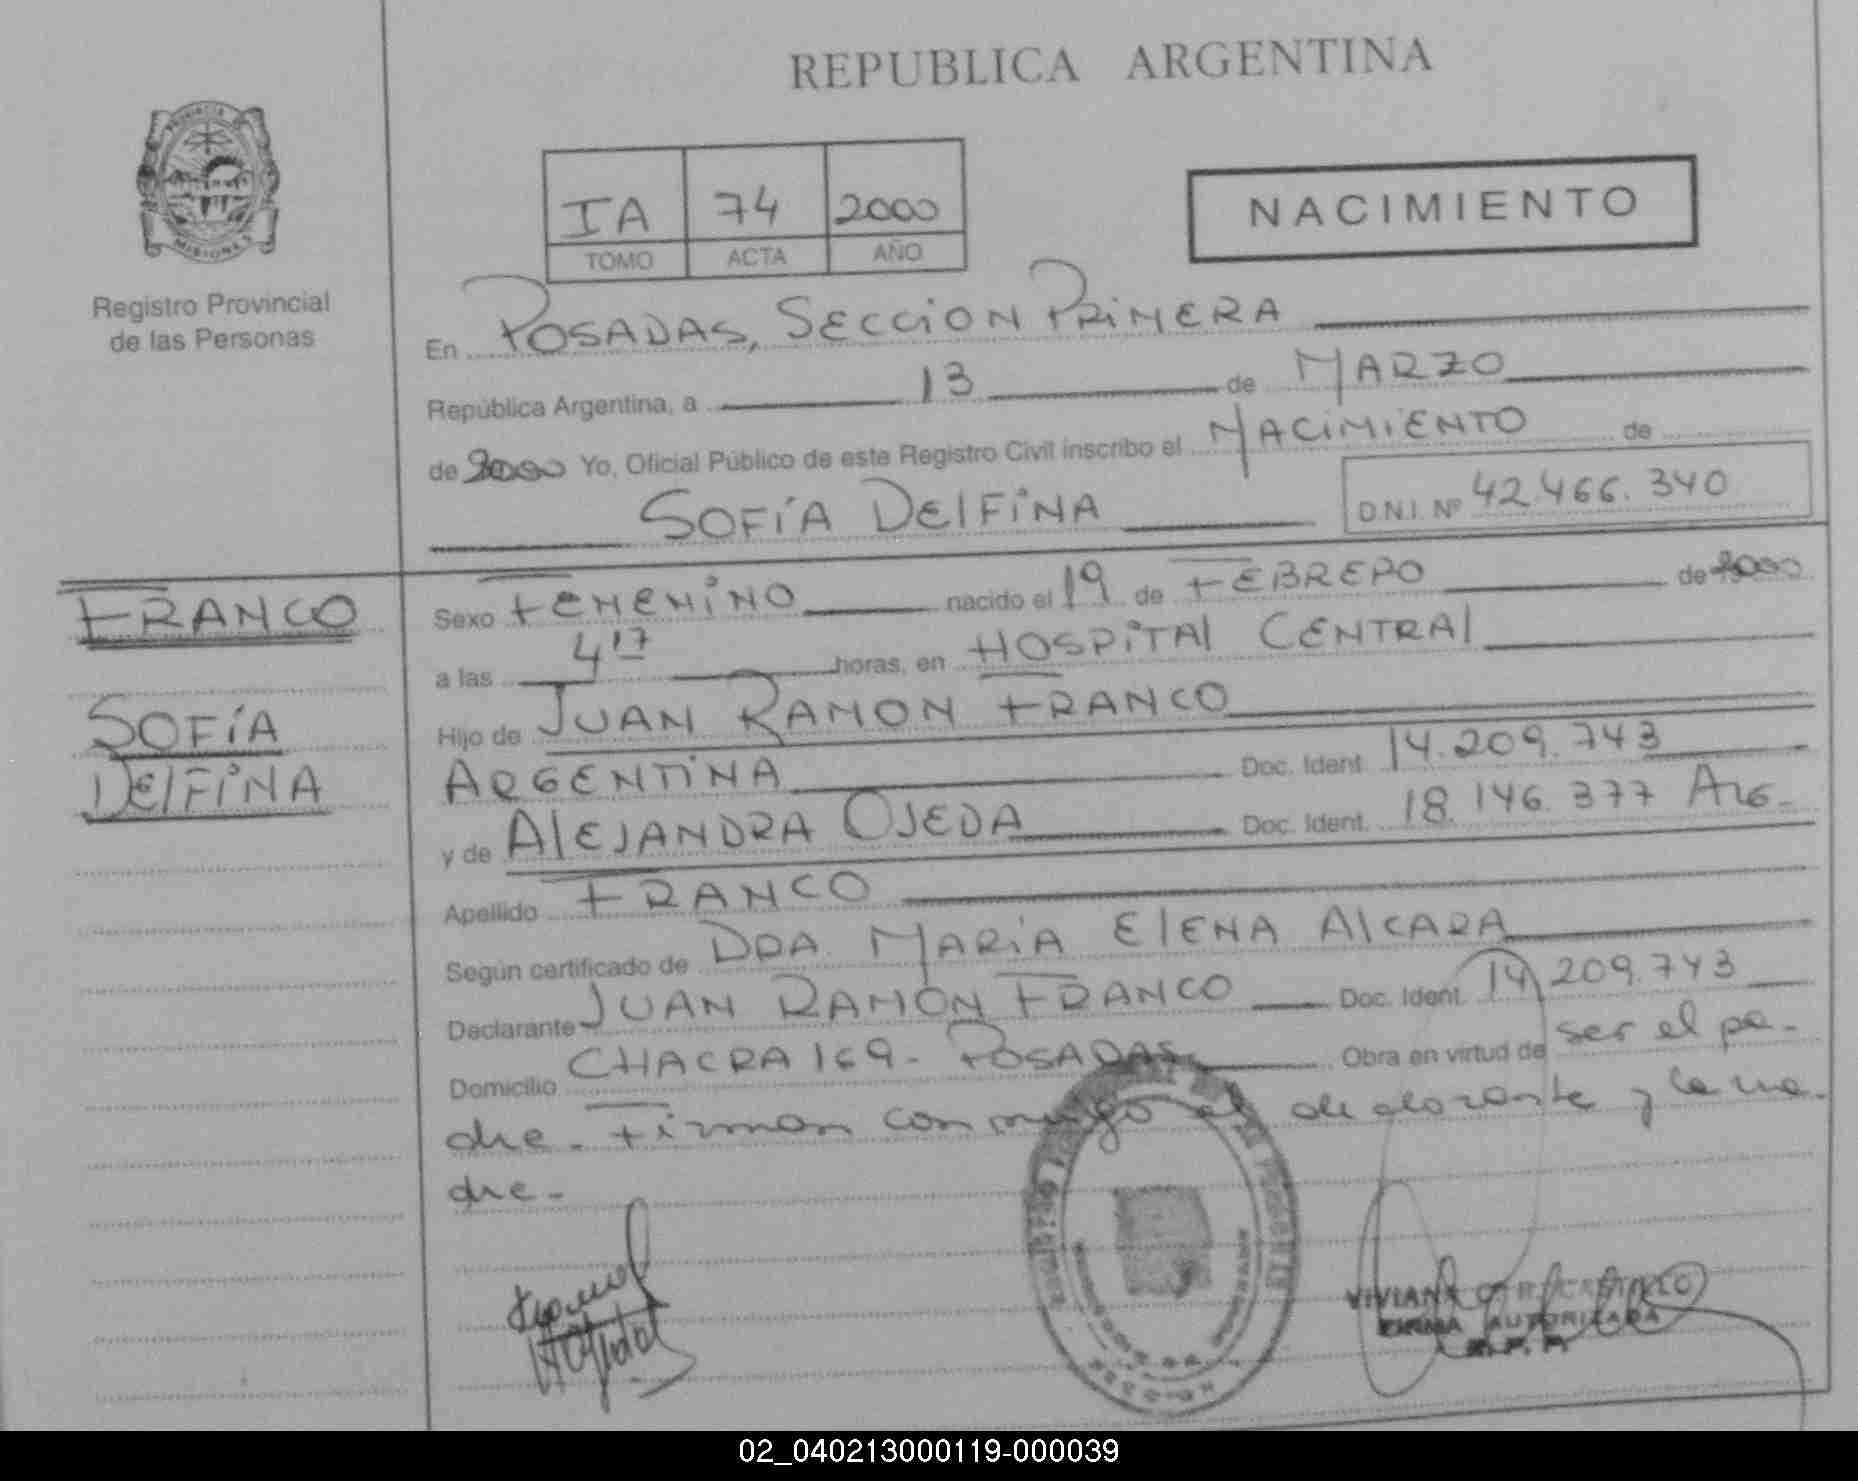 REPUBLICA ARGENTINA
PROVINCIA DE
MISIONES
Registro Provincial
de las Personas
IA 74 2000
TOMO ACTA AÑO
NACIMIENTO
En POSADAS, SECCION PRIMERA
República Argentina, a 13 de MARZO
de 2000 Yo, Oficial Público de este Registro Civil inscribo el NACIMIENTO de
SOFÍA DELFINA D.N.I. Nº 42.466.340
FRANCO
SOFÍA
DELFINA
Sexo FEMENINO nacido el 19 de FEBRERO de 2000
a las 4 17 horas, en HOSPITAL CENTRAL
Hijo de JUAN RAMON FRANCO
ARGENTINA Doc. Ident 14.209.743
y de ALEJANDRA OJEDA Doc. Ident. 18.146.377 ARG-
Apellido FRANCO
Según certificado de DRA. MARIA ELENA ALCARA
Declarante JUAN RAMÓN FRANCO Doc. Ident. 14 209.743
Domicilio CHACRA 169 - POSADAS Obra en virtud de ser el pa-
dre - Firman conmigo el declarante y la ma-
dre -
VIVIANA CASTILLO
FIRMA AUTORIZADA
R.P.P.
02_040213000119-000039